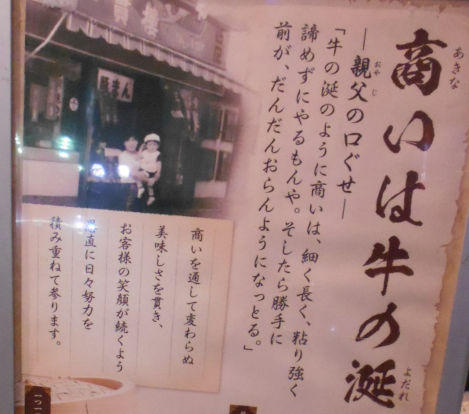 商いは牛の涎
あきな
よだれ
―親父の口ぐせ―
おやじ
「牛の涎のように商いは、細く長く、粘り強く
諦めずにやるもんや。そしたら勝手に
前が、だんだんおらんようになっとる。」
商いを通して変わらぬ
美味しさを貫き、
お客様の笑顔が続くよう
愚直に日々努力を
積み重ねて参ります。
豚まん